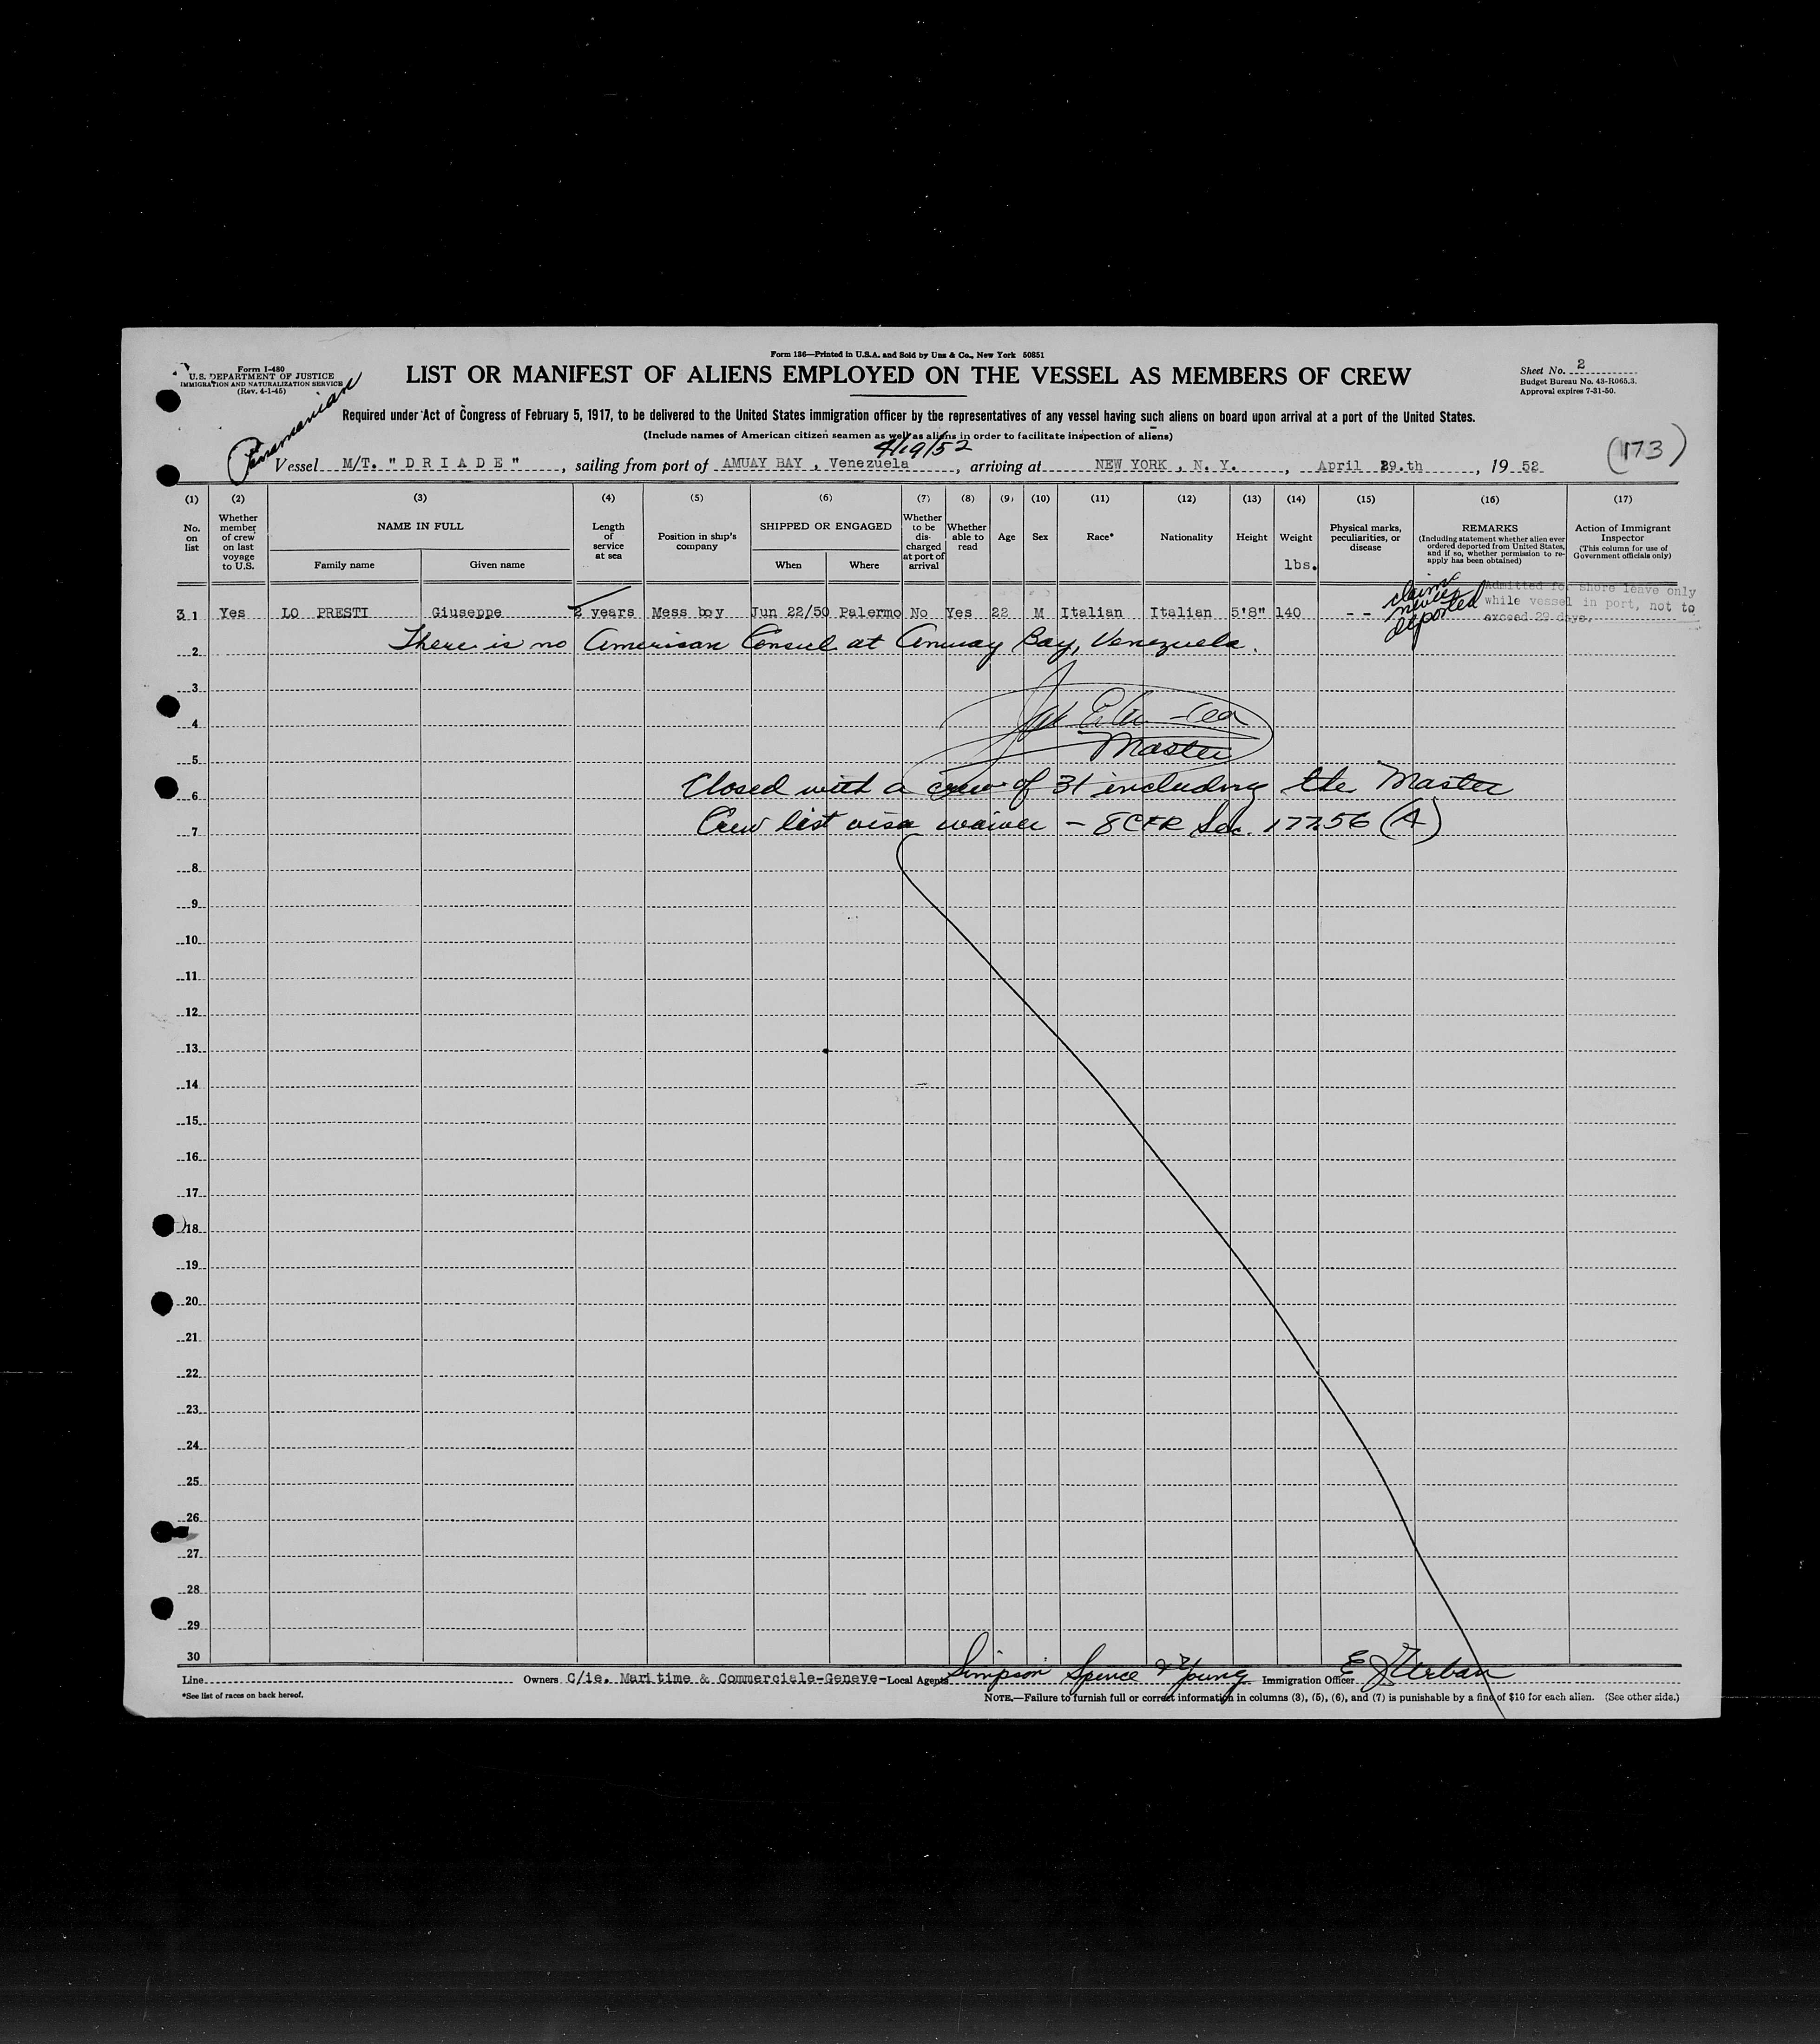 Form 136—Printed in U.S.A. and Sold by Unz & Co., New York 50851
Form I-480
U.S. DEPARTMENT OF JUSTICE
IMMIGRATION AND NATURALIZATION SERVICE
(Rev. 4-1-45)
Panamanian
LIST OR MANIFEST OF ALIENS EMPLOYED ON THE VESSEL AS MEMBERS OF CREW
Sheet No. 2
Budget Bureau No. 43-R065.3.
Approval expires 7-31-50.
Required under Act of Congress of February 5, 1917, to be delivered to the United States immigration officer by the representatives of any vessel having such aliens on board upon arrival at a port of the United States.
(Include names of American citizen seamen as well as aliens in order to facilitate inspection of aliens)
4/19/52
(173)
Vessel M/T. "DRIADE", sailing from port of AMUAY BAY, Venezuela, arriving at NEW YORK, N. Y., April 29.th, 19 52
(1) (2) (3) (4) (5) (6) (7) (8) (9) (10) (11) (12) (13) (14) (15) (16) (17)
No. on list
Whether member of crew on last voyage to U.S.
NAME IN FULL
Family name
Given name
Length of service at sea
Position in ship's company
SHIPPED OR ENGAGED
When
Where
Whether to be discharged at port of arrival
Whether able to read
Age
Sex
Race*
Nationality
Height
Weight
lbs.
Physical marks, peculiarities, or disease
REMARKS
(Including statement whether alien ever ordered deported from United States, and if so, whether permission to re-apply has been obtained)
Action of Immigrant Inspector
(This column for use of Government officials only)
31 Yes LO PRESTI Giuseppe 2 years Mess boy Jun 22/50 Palermo No Yes 22 M Italian Italian 5'8" 140 - -
claims never deported
Admitted for shore leave only
while vessel in port, not to
exceed 29 days.
2 There is no American Consul at Amuay Bay, Venezuela.
3
4
Master
5
6 Closed with a crew of 31 including the Master
7 Crew list visa waiver - 8 CFR Sec. 177.56 (A)
8
9
10
11
12
13
14
15
16
17
18
19
20
21
22
23
24
25
26
27
28
29
30
Line Owners C/ie. Maritime & Commerciale-Geneve- Local Agents Simpson Spence & Young Immigration Officer E J Urban
*See list of races on back hereof.
NOTE.—Failure to furnish full or correct information in columns (3), (5), (6), and (7) is punishable by a fine of $10 for each alien. (See other side.)